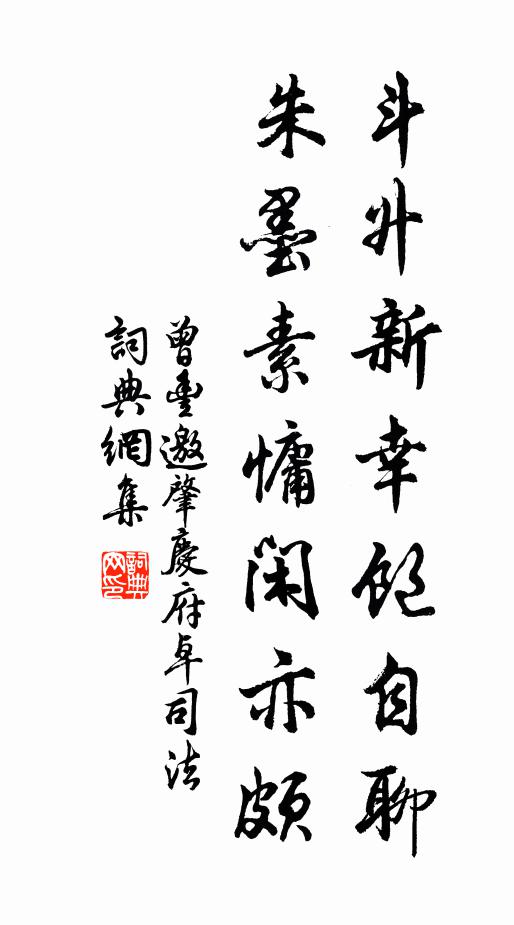 斗升新幸飽自聊
朱墨素慵閑亦頗
曾豐邀肇慶府卓司法
詞典網集
詞典網印